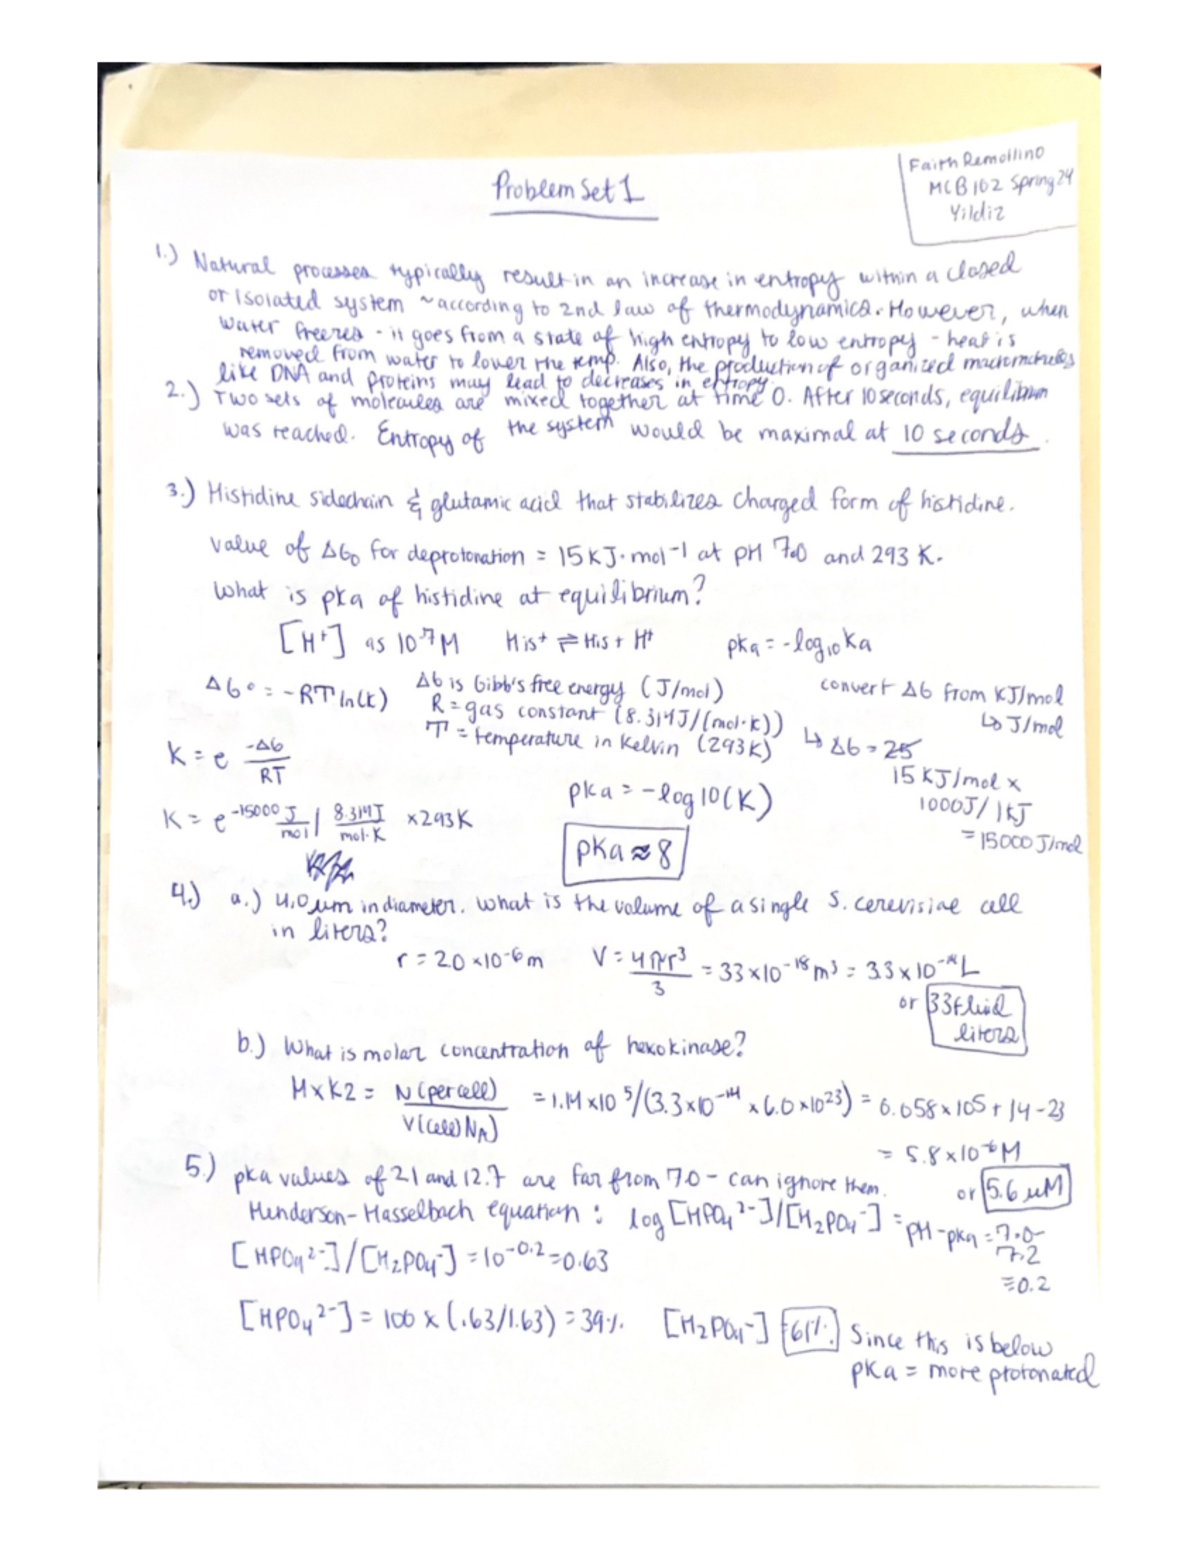 Problem Set 1
Faith Remollino
MCB 102 Spring 24
Yildiz
1.) Natural processes typically result in an increase in entropy within a closed
or isolated system ~according to 2nd law of thermodynamics. However, when
water freezes - it goes from a state of high entropy to low entropy - heat is
removed from water to lower the temp. Also, the production of organized macromolecules
like DNA and proteins may lead to decreases in entropy.
2.) Two sets of molecules are mixed together at time 0. After 10 seconds, equilibrium
was reached. Entropy of the system would be maximal at 10 seconds.
3.) Histidine sidechain & glutamic acid that stabilizes charged form of histidine.
value of ΔG₀ for deprotonation = 15 kJ·mol⁻¹ at pH 7.0 and 293 K.
What is pka of histidine at equilibrium?
[H⁺] as 10⁻⁷M His⁺ ⇌ His + H⁺ pka = -log₁₀ Ka
ΔG° = -RT ln(k) ΔG is Gibb's free energy (J/mol) convert ΔG from KJ/mol
R = gas constant (8.314J/(mol·k)) ↳ J/mol
T = temperature in Kelvin (293K) ↳ ΔG = 25
K = e -ΔG/RT
15 KJ/mol x
1000J/1kJ
= 15000 J/mol
pka = -log10(K)
K = e -15000 J/mol / 8.314J/mol·K × 293K
pka ≈ 8
4.) a.) 4.0 μm in diameter. What is the volume of a single S. cerevisiae cell
in liters?
r = 2.0 × 10⁻⁶ m V = 4πr³/3 = 33 × 10⁻¹⁸ m³ = 3.3 × 10⁻¹⁴ L
or 33 fluid
liters
b.) What is molar concentration of hexokinase?
M×K2 = N (per cell)/V(cell) NA) = 1.14 × 10⁵/(3.3×10⁻¹⁴ × 6.0×10²³) = 6.058 × 10⁵ + 14 - 23
= 5.8 × 10⁻⁶ M
or 5.6 μM
5.) pka values of 2.1 and 12.7 are far from 7.0 - can ignore them.
Henderson-Hasselbach equation: log [HPO₄²⁻]/[H₂PO₄⁻] = pH - pka = 7.0-
7.2
= 0.2
[HPO₄²⁻]/[H₂PO₄⁻] = 10⁻⁰·² = 0.63
[HPO₄²⁻] = 100 × (.63/1.63) = 39%. [H₂PO₄⁻] = 61%. Since this is below
pKa = more protonated